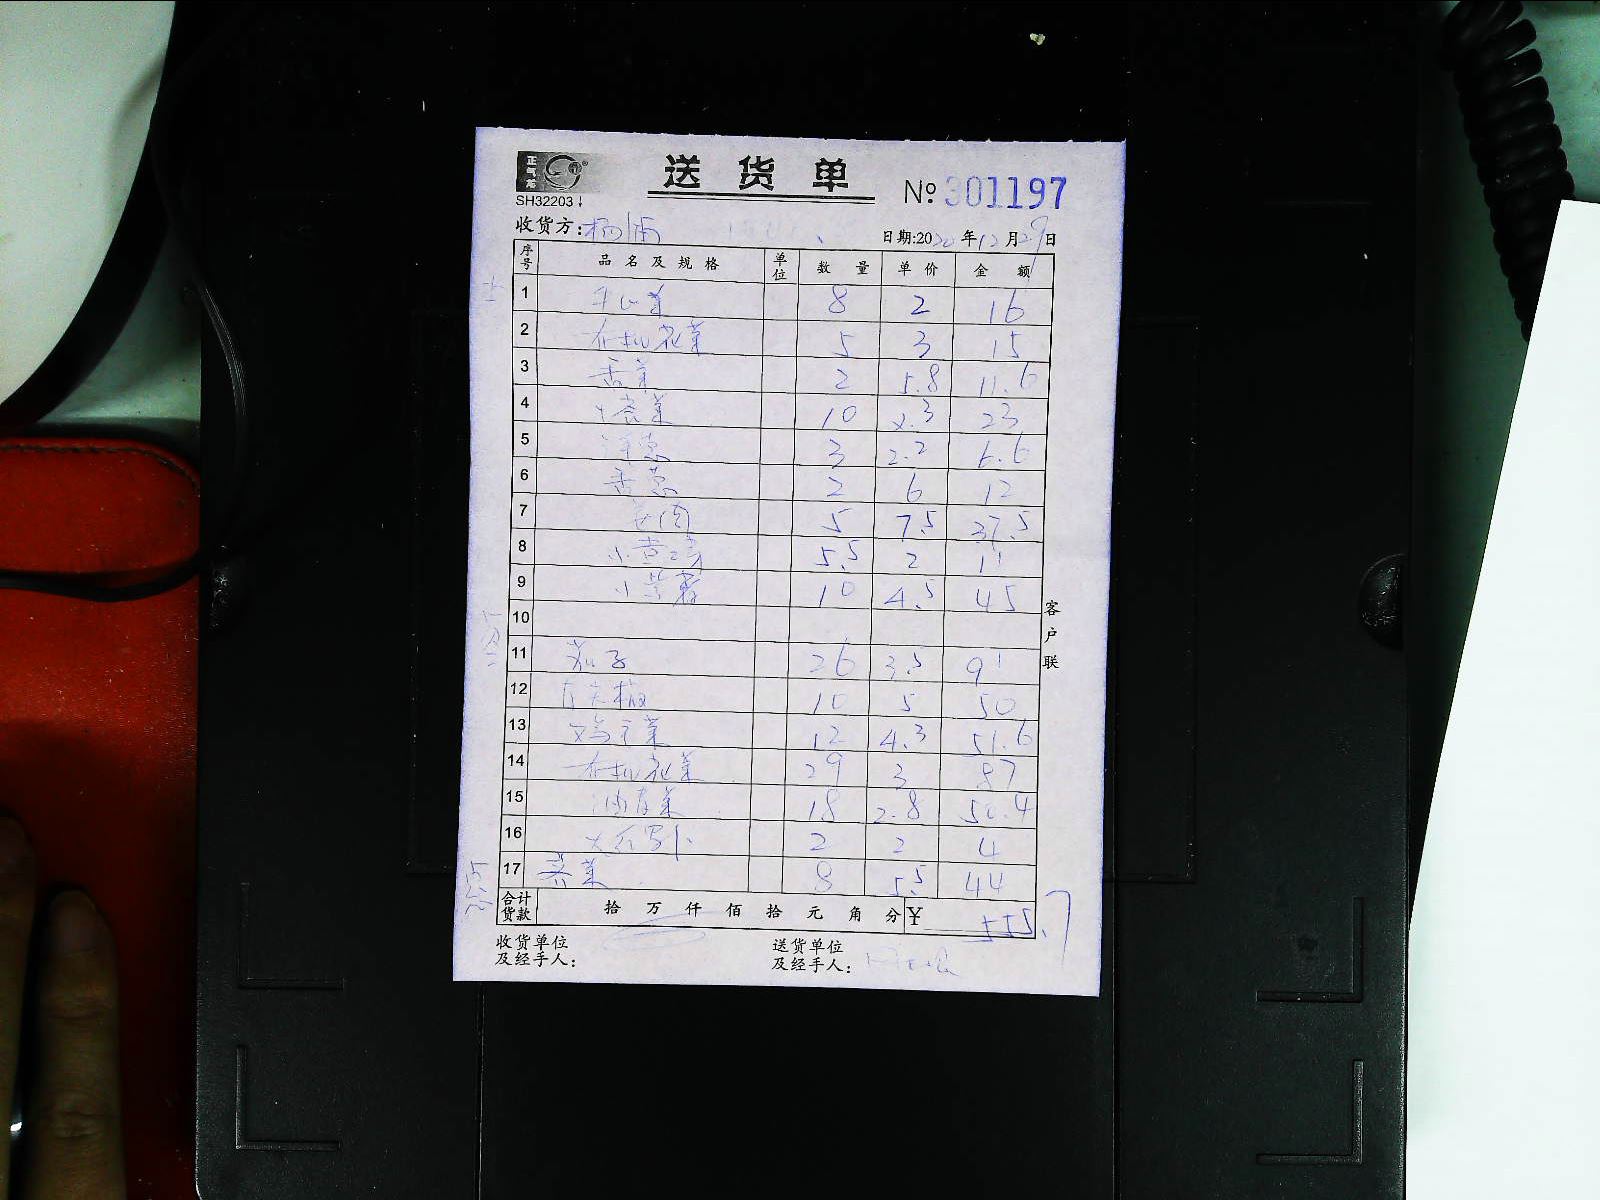 正气嘉
送货单
№ 301197
SH32203↓
收货方:杨浦
日期:2020年12月29日
序号 品名及规格 单位 数量 单价 金额
1 牛心菜 8 2 16
2 有机花菜 5 3 15
3 香菜 2 5.8 11.6
4 大卷菜 10 2.3 23
5 洋葱 3 2.2 6.6
6 香葱 2 6 12
7 姜肉 5 7.5 37.5
8 小黄瓜 5.5 2 11
9 小芋艿 10 4.5 45
10
11 茄子 26 3.5 91
12 杭尖椒 10 5 50
13 鸡毛菜 12 4.3 51.6
14 有机花菜 29 3 87
15 油麦菜 18 2.8 50.4
16 大红萝卜 2 2 4
17 荠菜 8 5.5 44
合计货款 拾万仟佰拾元角分 ¥ 555.7
收货单位及经手人:
送货单位及经手人:
客户联